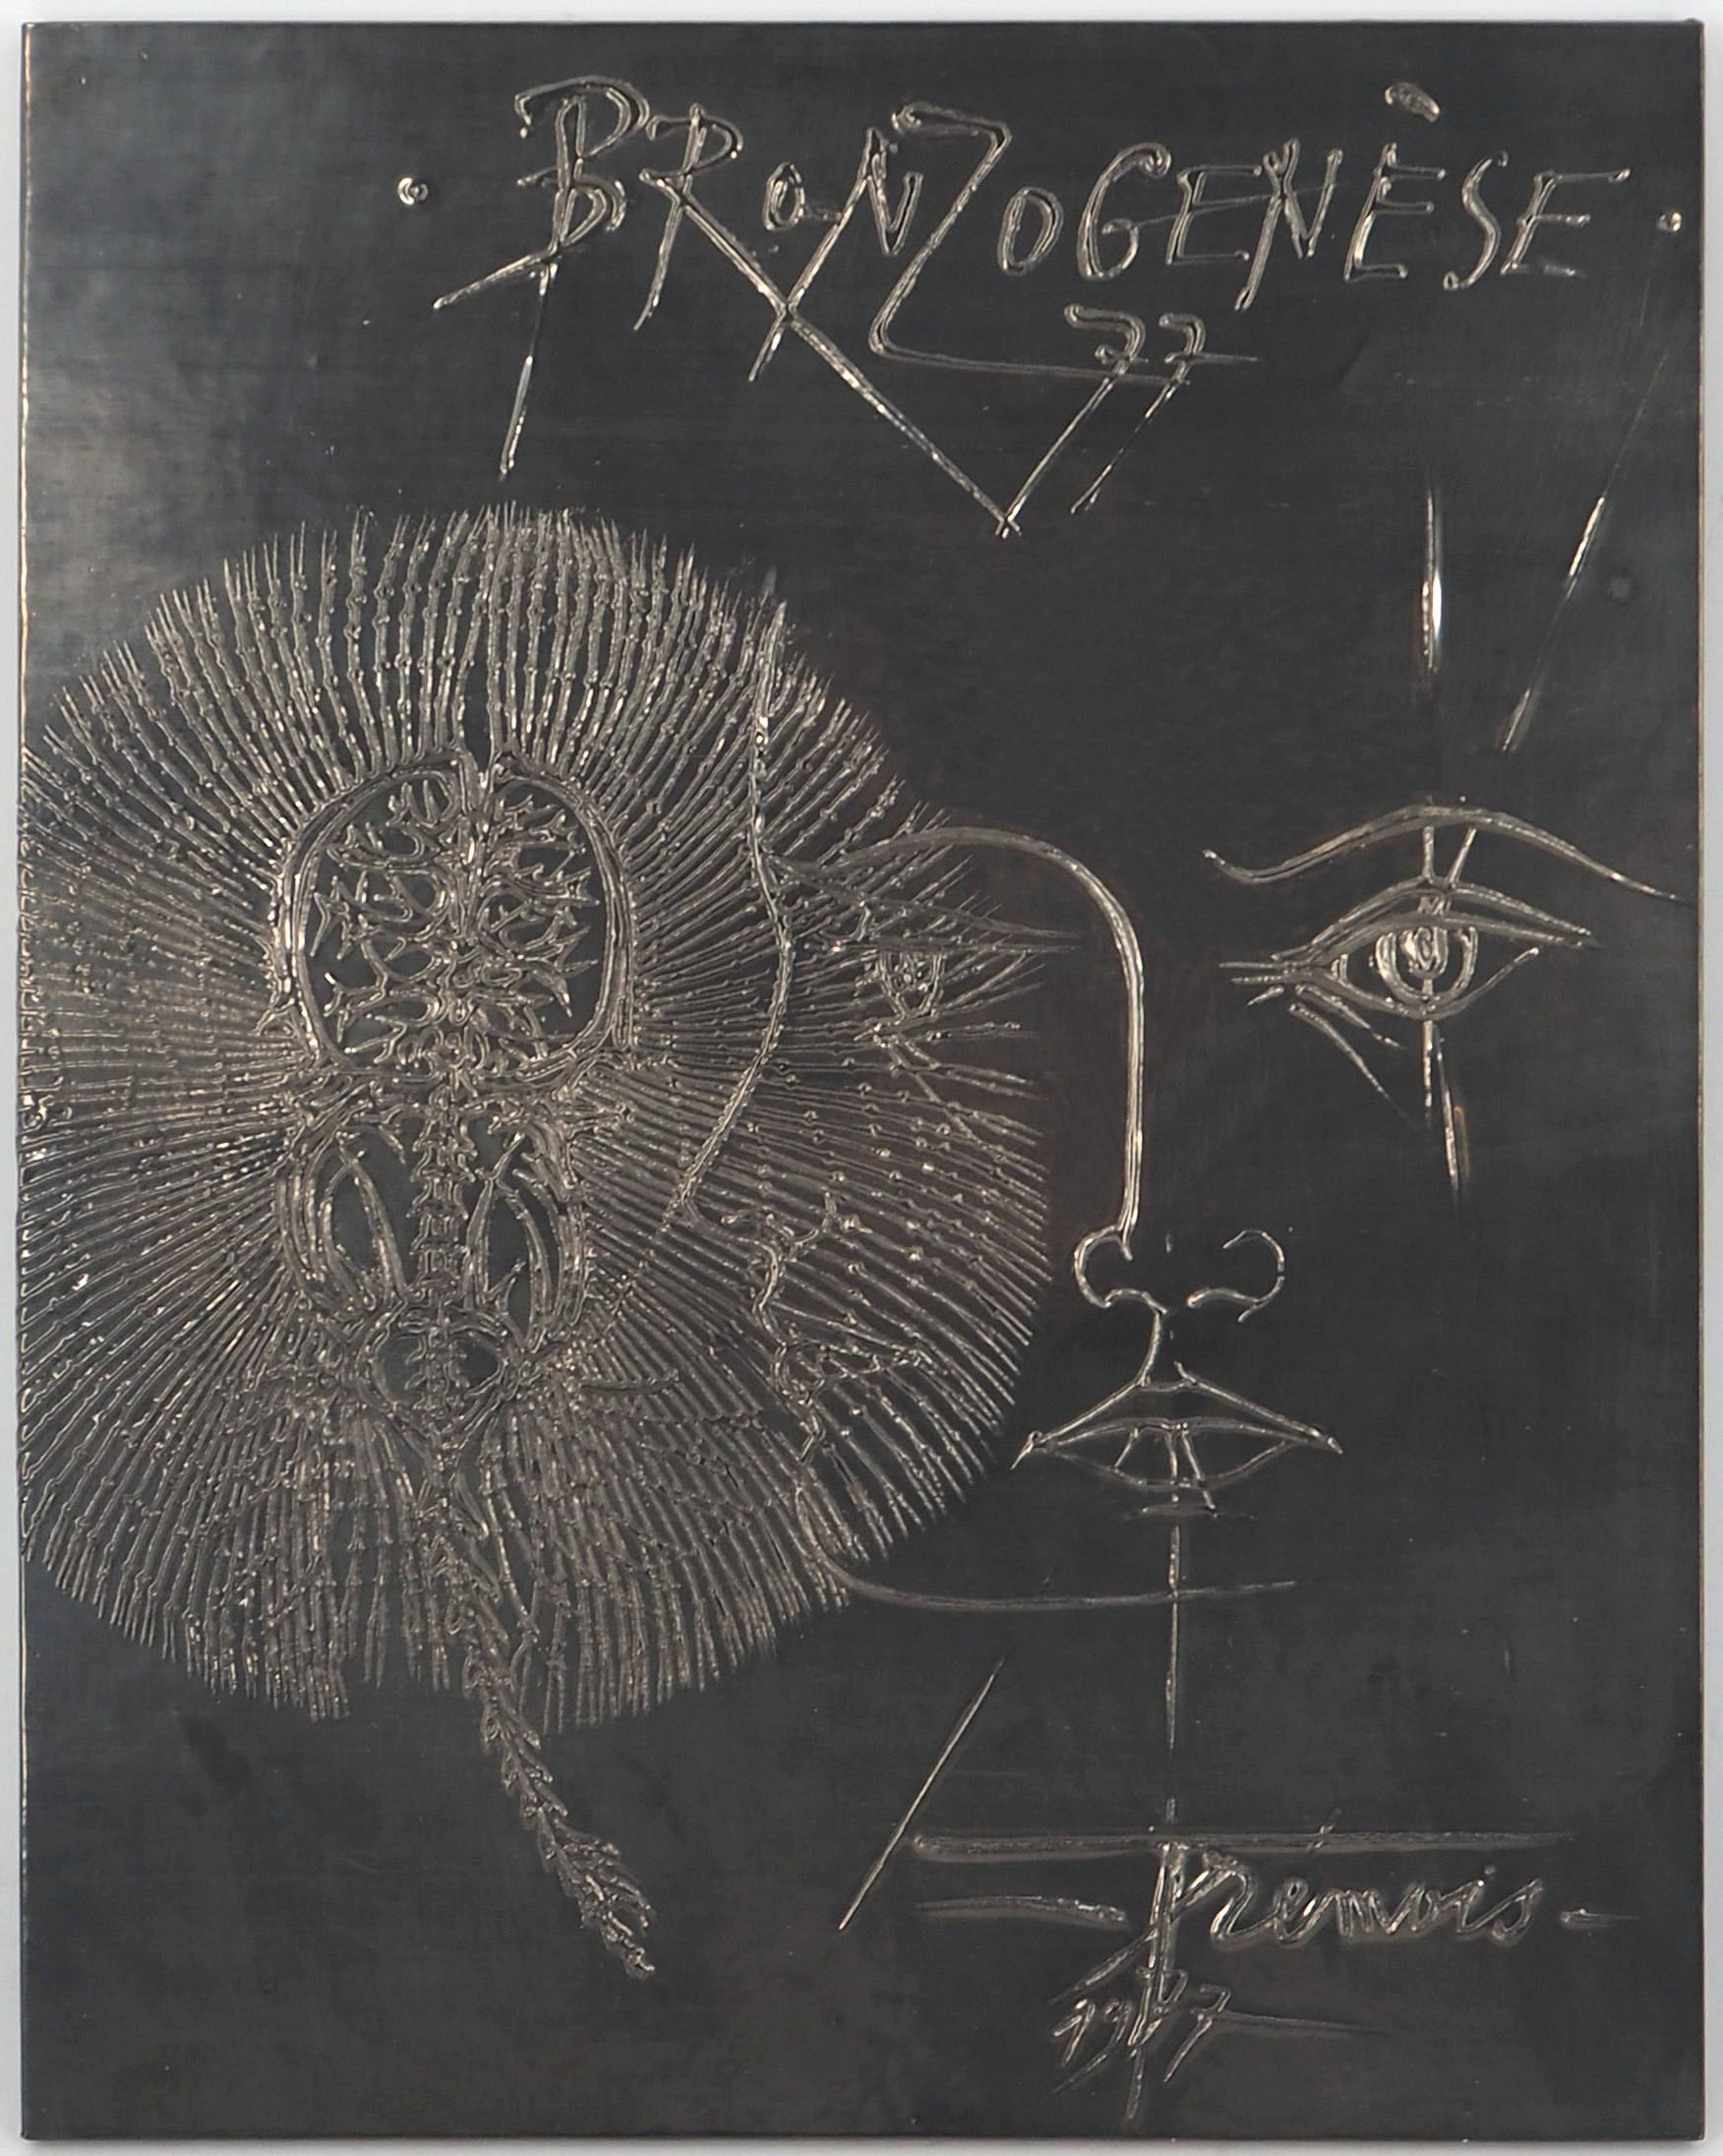 · BRONZOGENÈSE ·
77
Trémois
1977